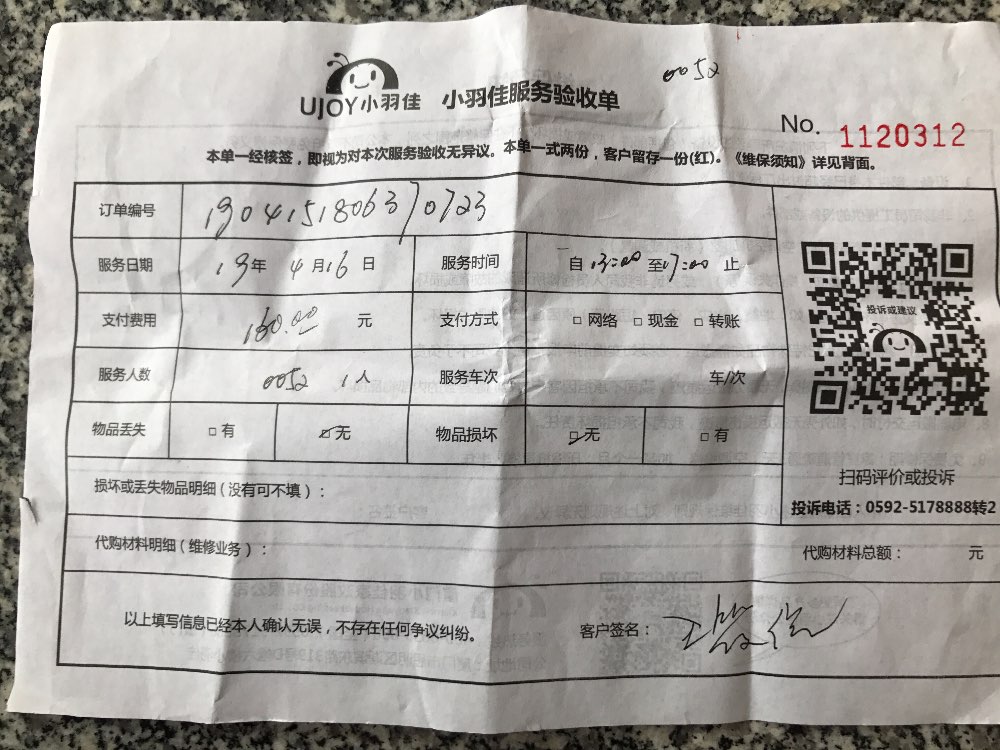 0052
UJOY小羽佳 小羽佳服务验收单
No. 1120312
本单一经核签，即视为对本次服务验收无异议。本单一式两份，客户留存一份(红)。《维保须知》详见背面。
订单编号 1904151806370723
服务日期 19年 4月16日 服务时间 自13:00至17:00止
支付费用 160.00 元 支付方式 □网络 □现金 □转账
服务人数 0052 1人 服务车次 车/次
物品丢失 □有 ☑无 物品损坏 ☑无 □有
投诉或建议
扫码评价或投诉
投诉电话：0592-5178888转2
损坏或丢失物品明细（没有可不填）：
代购材料明细（维修业务）： 代购材料总额： 元
以上填写信息已经本人确认无误，不存在任何争议纠纷。 客户签名：